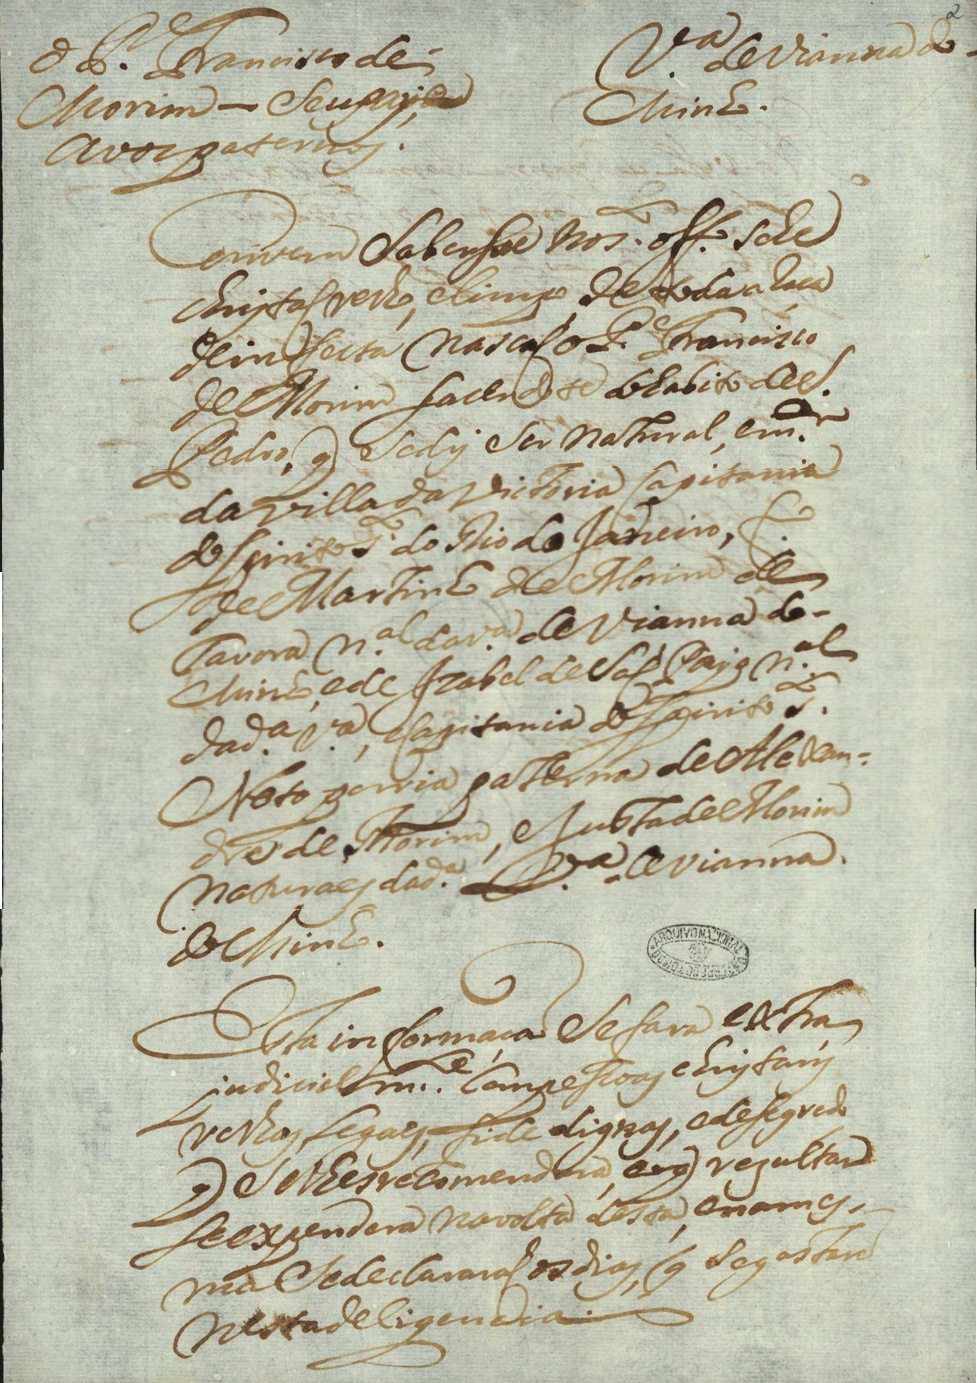 2
o P.e Francisco de
Morim – Seu pay, e
Avos paternos.
V.a de Vianna do
Minho.
Convem saberse nos. off. se he
christaõ velho, e limpo, de toda a raca
de infecta nascaõ o P.e Francisco
de Morim sacerdote do habito de S.
Pedro, q se diz ser natural, e m.or
da villa da Victoria Capitania
do Spirito S.to do Rio de Janeiro, f.o
de Martinho de Morim de
Tavora n.al da v.a de Vianna do
Minho, e de Izabel de Saa n.al
da d.a v.a, Capitania do Spirito S.to
Neto por via paterna de Alexan-
dre de Morim, e Justa de Morim
naturaes da d.a V.a de Vianna.
do Minho.
Esta informaçaõ se fara extra
judicial m.te com pessoas christãns
velhas, legaes, fide dignas, e de segredo
q se lhes recomendará, e o q rezultar
se expendera na volta desta, e na mes-
ma se declararaõ os dias, q se gastare
nesta deligencia.